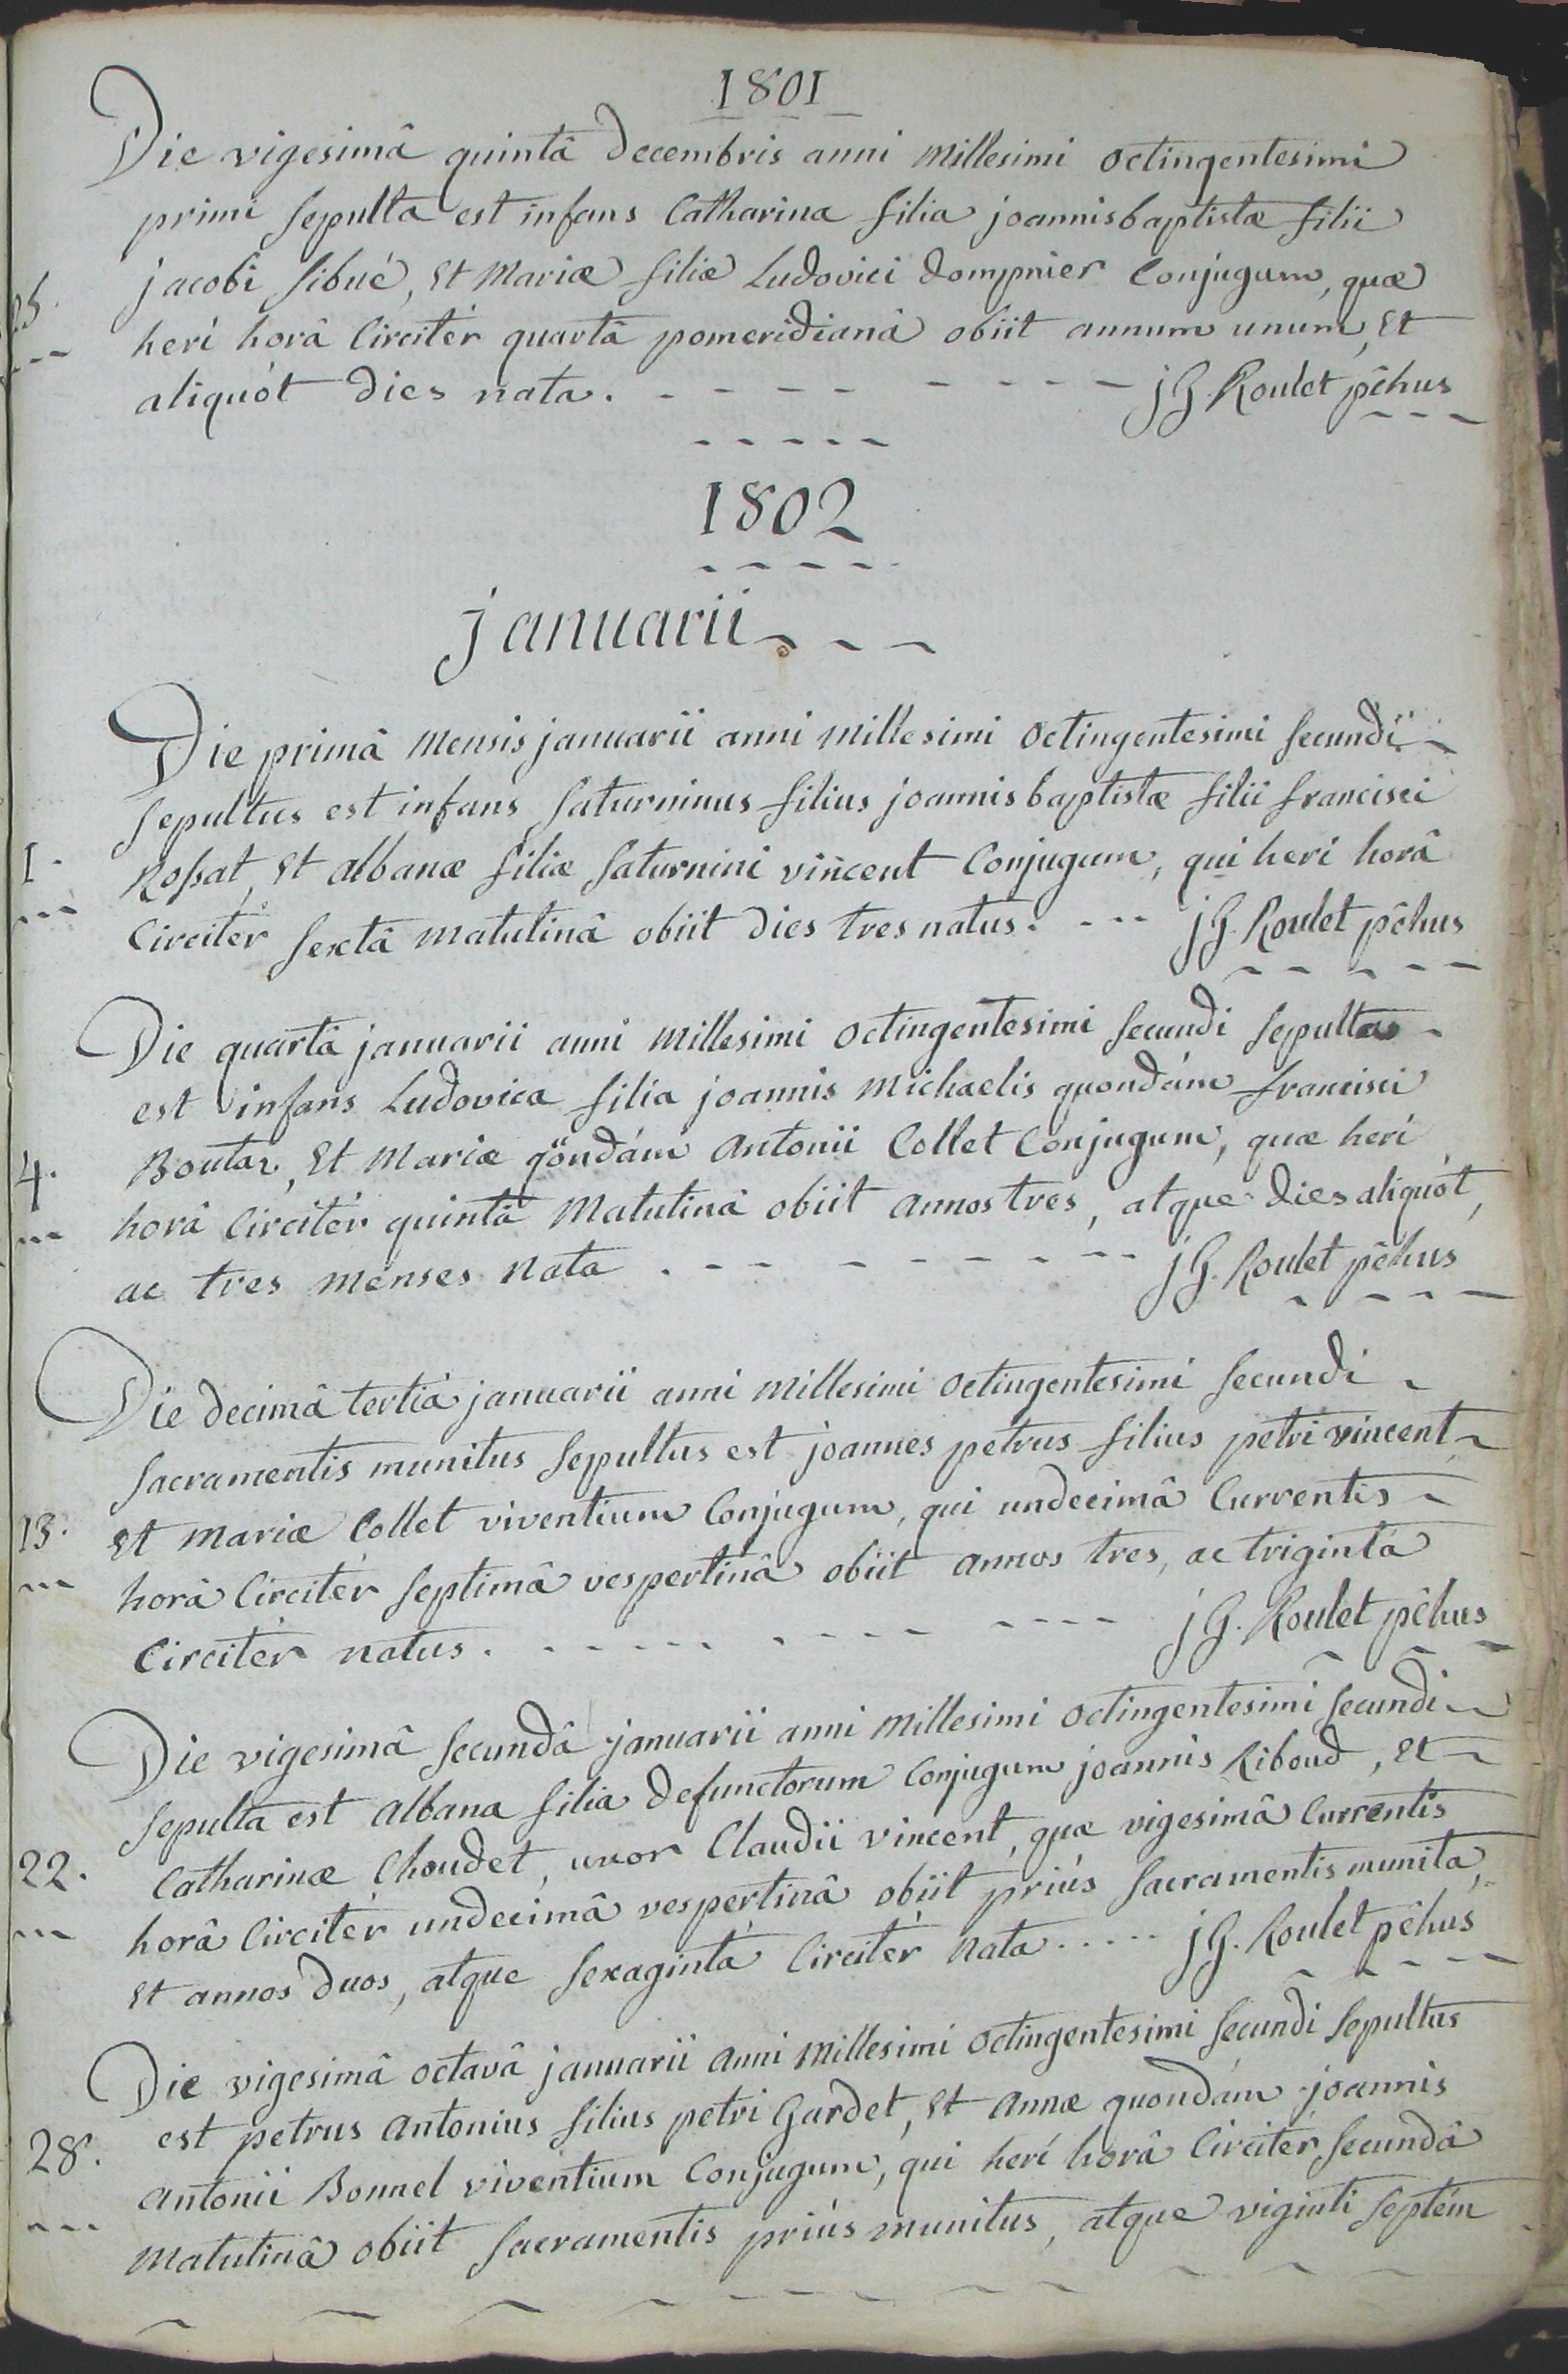 1801
Die vigesimâ quintâ Decembris anni Millesimi octingentesimi
primi sepulta est infans Catharina filia joannisbaptistæ filii
jacobi sibué, Et Mariæ filiæ Ludovici Dompnier Conjugum, quæ
25.
heri horâ Circitér quartâ pomeridianâ obiit annum unum, Et
aliquót dies nata. - - - - - - - - - jG. Roulet pêhus
1802
januarii - - -
Die primâ Mensis januarii anni Millesimi octingentesimi secundi -
sepultus est infans saturninus filius joannisbaptistæ filii francisci
1.
Rossat, Et albanæ filiæ saturnini vincent Conjugum, qui heri horâ
Circitér sextâ matutinâ obiit dies tres natus. - - - jG. Roulet pêhus
Die quartâ januarii anni Millesimi octingentesimi secundi sepulta -
est infans Ludovica filia joannis Michaelis quondám francisci
4.
Boutaz, Et Mariæ qöndám Antonii Collet Conjugum, quæ heri
horâ Circitér quintâ Matutinâ obiit annos tres, atque dies aliquót,
ac tres menses nata . - - - - - - - - - jG. Roulet pêhus
Die decimâ tertiâ januarii anni Millesimi octingentesimi secundi -
sacramentis munitus sepultus est joannes petrus filius petri vincent -
13.
Et Mariæ Collet viventium Conjugum, qui undecimâ Currentis -
horâ Circitér septimâ vespertinâ obiit annos tres, ac trigintá
Circitér natus. - - - - - - - - - - - - - jG. Roulet pêhus
Die vigesimâ secundâ januarii anni Millesimi octingentesimi secundi -
sepulta est albana filia defunctorum Conjugum joannis Riboud, Et -
22.
Catharinæ Choudet, uxor Claudii vincent, quæ vigesimâ Currentis
horâ Circitér undecimâ vespertinâ obiit priús sacramentis munita,
Et annos duos, atque sexagintá Circitér nata - - - - - jG. Roulet pêhus
Die vigesimâ octavâ januarii anni Millesimi octingentesimi secundi sepultus
est petrus antonius filius petri Gardet, Et annæ quondám joannis
28.
antonii Bonnel viventium Conjugum, qui heri horâ Circitér secundâ
Matutinâ obiit sacramentis priús munitus, atque viginti septém